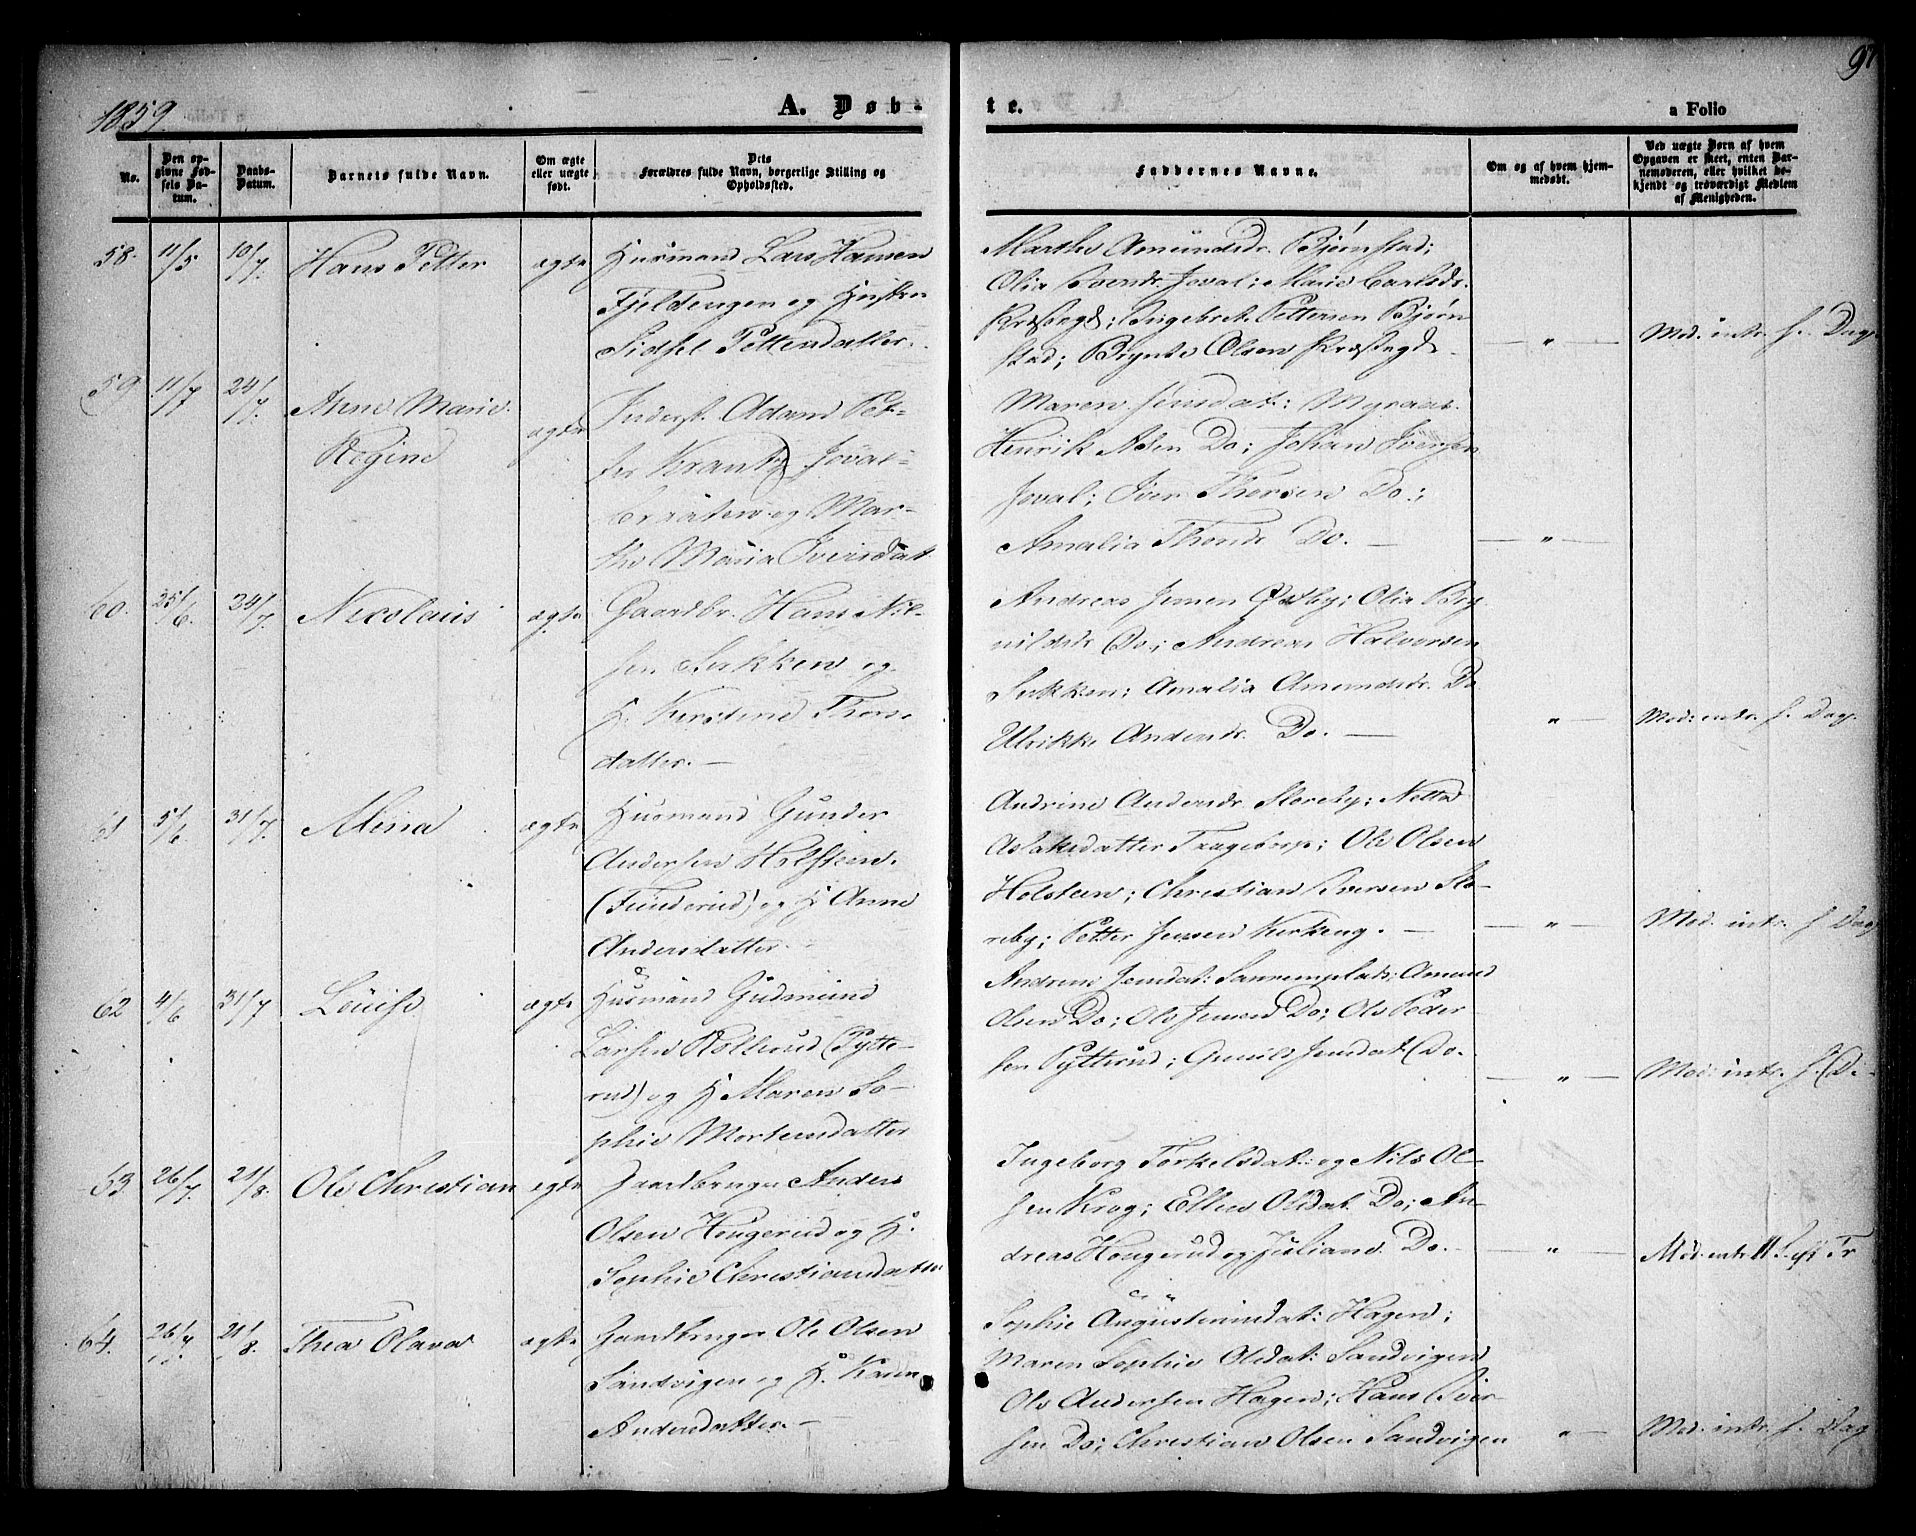 1859.
97
A. Døb-
te.
a Folio
No.
Den op-
givne Fød-
sels Da-
tum.
Daabs-
Datum.
Barnets fulde Navn.
Om ægte
eller uægte
født.
Dets
Forældres fulde Navn, borgerlige Stilling og
Opholdssted.
Faddernes Navne.
Om og af hvem hjem-
medøbt.
Ved uægte Børn af hvem
Opgaven er skeet, enten Bar-
nemoderen, eller hvilket be-
kjendt og troværdigt Medlem
af Menigheden.
58. 11/5 10/7. Hans Petter ægte
Husmand Lars Hansen
Fjeldengen og Hustru
Sidsel Pettersdatter.
Marthe Amundsdr. Bjørnstad;
Olia Svendr. Joval; Marie Carlsdr.
Ingebret Pettersen Bjørn
stad; Olsen
" Mod. intr. s. Dag.
59. 11/7 24/7. Anne Marie
Regine ægte
Inderst. Adam Pet-
ter Joval-
braaten og Mar-
the Maria Iversdat
Maren Jensdat: Myraas
Henrik Do; Johan Iversen
Joval; Iver Thorsen Do;
Amalia Do. —
"
60. 25/6. 24/7. Nicolaus ægte
Gaardbr. Hans Nil-
sen Sukken og
H. Kirstine Thors-
datter. —
Andreas Jensen Østby; Olia Bry
nildsdr Do; Andreas Halvorsen
Sukken; Amalia Amundsdr. Do
Ulrikke Andersdr. Do. —
" Mod: intr. s. Dag.
61 5/6. 31/7. Mina ægte
Husmand Gunder
Andersen Holsteen.
(Funderud) og H Anne
Andersdatter.
Andrine Andersdr Storeby; Netta
Aslaksdatter Ole Olsen
Holsteen; Christian Iversen Sto-
reby; Petter Jensen Kirkeng. —
" Mod. intr. s Dag
62 4/6 31/7 Louise ægte
Husmand Gudmund
Larsen Kollerud (Pytte-
rud) og H Maren So-
phie Mortensdatter
Jensdat: Amund
Olsen Do; Ole Jensen Do; Ole Peder
sen Pytterud; Gunild Jensdat Do.
" Mod. intr. s. D.
63. 26/7. 21/8. Ole Christian ægte
Gaardbruger Anders
Olsen Hougerud og H.
Sophie Christiansdatter
Ingeborg Torkelsdat: og Nils Ol-
sen Krog; Ellen Olsdat. Do; An-
dreas Hougerud og Juliane Do. —
" Mod. intr.
64. 26/7. 21/8. Thea Olava ægte
Gaardbruger Ole Olsen
Sandvigen og H. Karen
Andersdatter. —
Sophie Augustinusdat: Hagen;
Maren Sophie Olsdat: Sandvigen
Ole Andersen Hagen; Hans Iver
sen Do; Christian Olsen Sandvigen
" Mod. intr. s. Dag